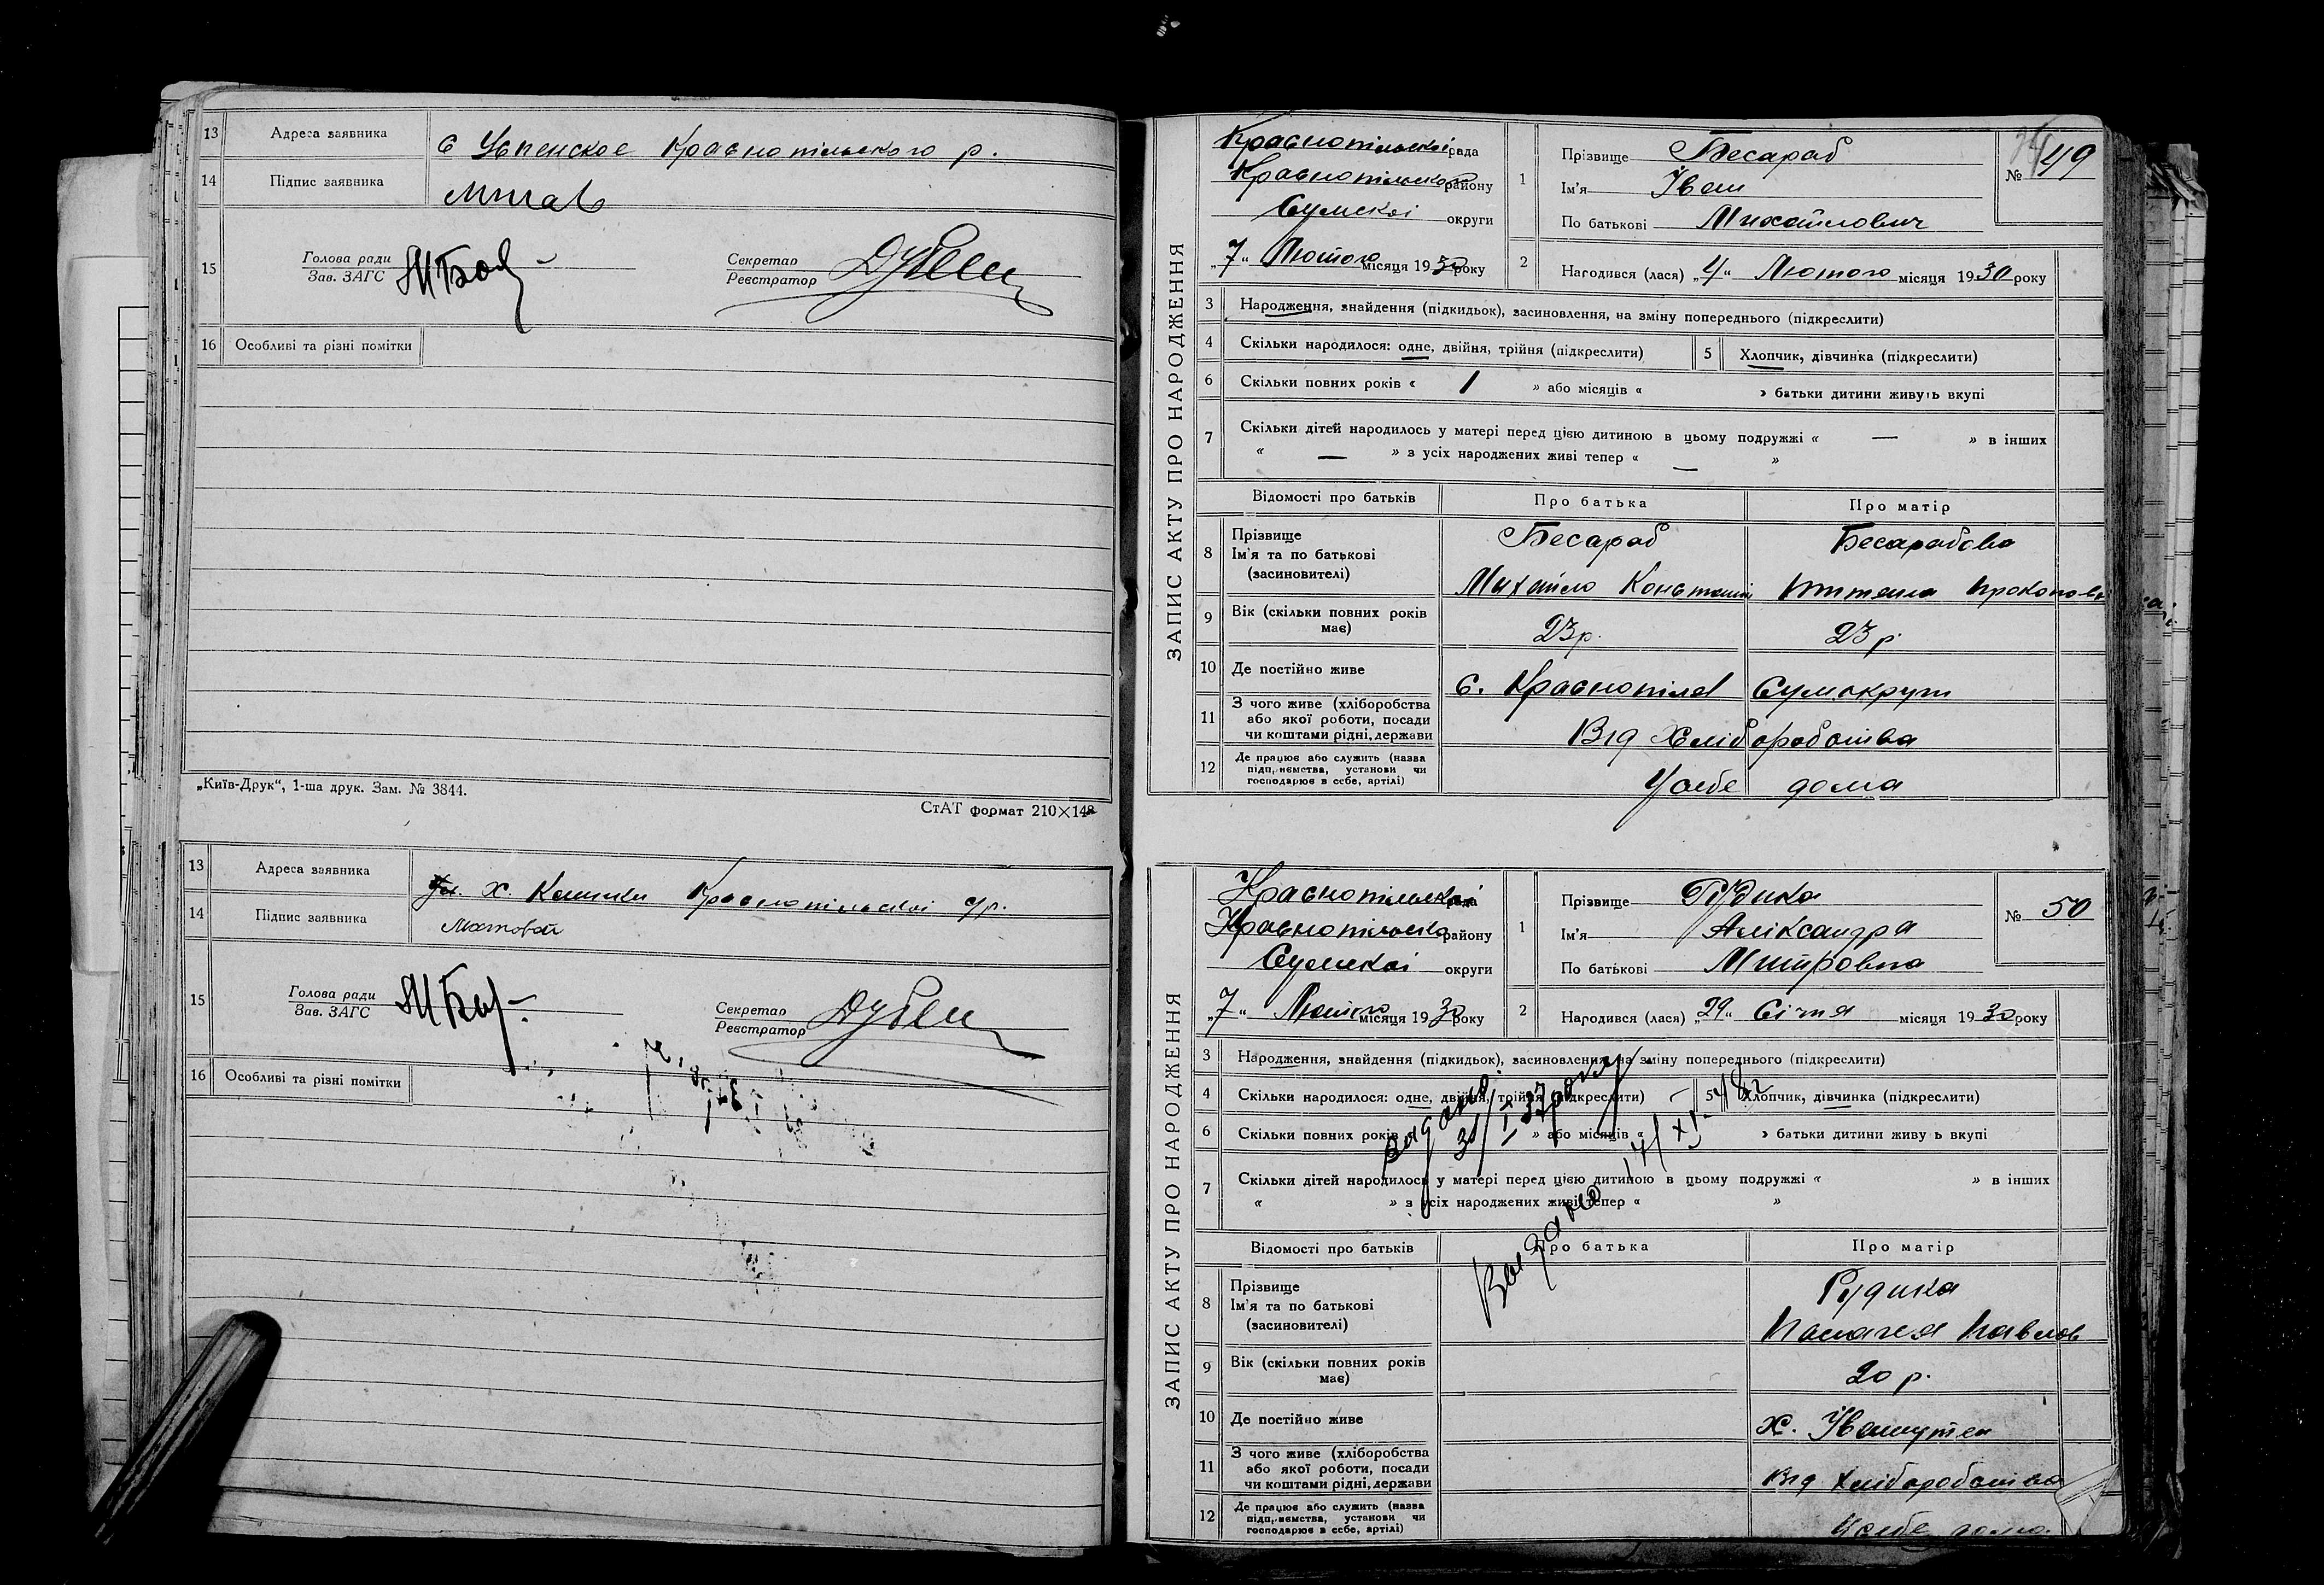 13 Адреса заявника с Успенское Краснопільського р.
14 Підпис заявника
15 Голова ради
Зав. ЗАГС
Секретар
Реєстратор
16 Особливі та різні помітки
„Київ-Друк“, 1-ша друк. Зам. № 3844.
СтАТ формат 210×148
13 Адреса заявника х. Краснопільскоі с/р.
14 Підпис заявника
15 Голова ради
Зав. ЗАГС
Секретар
Реєстратор
16 Особливі та різні помітки
ЗАПИС АКТУ ПРО НАРОДЖЕННЯ
Краснопільскоі рада
Краснопільского району
Сумскоі округи
„7“ Лютого місяця 1930 року
1 Прізвище Бесараб
Ім'я Іван
По батькові Михайлович
№ 49
2 Народився (лася) „4“ Лютого місяця 1930 року
3 Народження, знайдення (підкидьок), засиновлення, на зміну попереднього (підкреслити)
4 Скільки народилося: одне, двійня, трійня (підкреслити)
5 Хлопчик, дівчинка (підкреслити)
6 Скільки повних років « 1 » або місяців « » батьки дитини живуть вкупі
7 Скільки дітей народилось у матері перед цією дитиною в цьому подружжі « — » в інших
« — » з усіх народжених живі тепер « — »
Відомості про батьків Про батька Про матір
8 Прізвище
Ім'я та по батькові
(засиновителі)
Бесараб Бесарабова
Михайло
9 Вік (скільки повних років має) 23 р. 23 р
10 Де постійно живе с. Краснопілля Сумокруги
11 З чого живе (хліборобства або якої роботи, посади чи коштами рідні, держави Від Хліборобства
12 Де працює або служить (назва підприємства, установи чи господарює в себе, артілі) У себе дома
ЗАПИС АКТУ ПРО НАРОДЖЕННЯ
Краснопільскоі рада
Краснопільско району
Сумскоі округи
„7“ Лютого місяця 1930 року
1 Прізвище Рудика
Ім'я Аліксандра
По батькові Митровна
№ 50
2 Народився (лася) „29“ Січня місяця 1930 року
3 Народження, знайдення (підкидьок), засиновлення, на зміну попереднього (підкреслити)
4 Скільки народилося: одне, двійня, трійня (підкреслити)
5 Хлопчик, дівчинка (підкреслити)
6 Скільки повних років « » або місяців « » батьки дитини живуть вкупі
7 Скільки дітей народилось у матері перед цією дитиною в цьому подружжі « » в інших
« » з усіх народжених живі тепер « »
Видано 31/I 37 року
Выдано 14/XI-48 г
Відомості про батьків Про батька Про матір
8 Прізвище
Ім'я та по батькові
(засиновителі)
Рудика
Павлов
9 Вік (скільки повних років має) 20 р.
10 Де постійно живе х.
11 З чого живе (хліборобства або якої роботи, посади чи коштами рідні, держави Від Хліборобства
12 Де працює або служить (назва підприємства, установи чи господарює в себе, артілі) У себе дома.